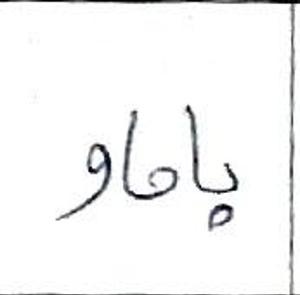 پاماو